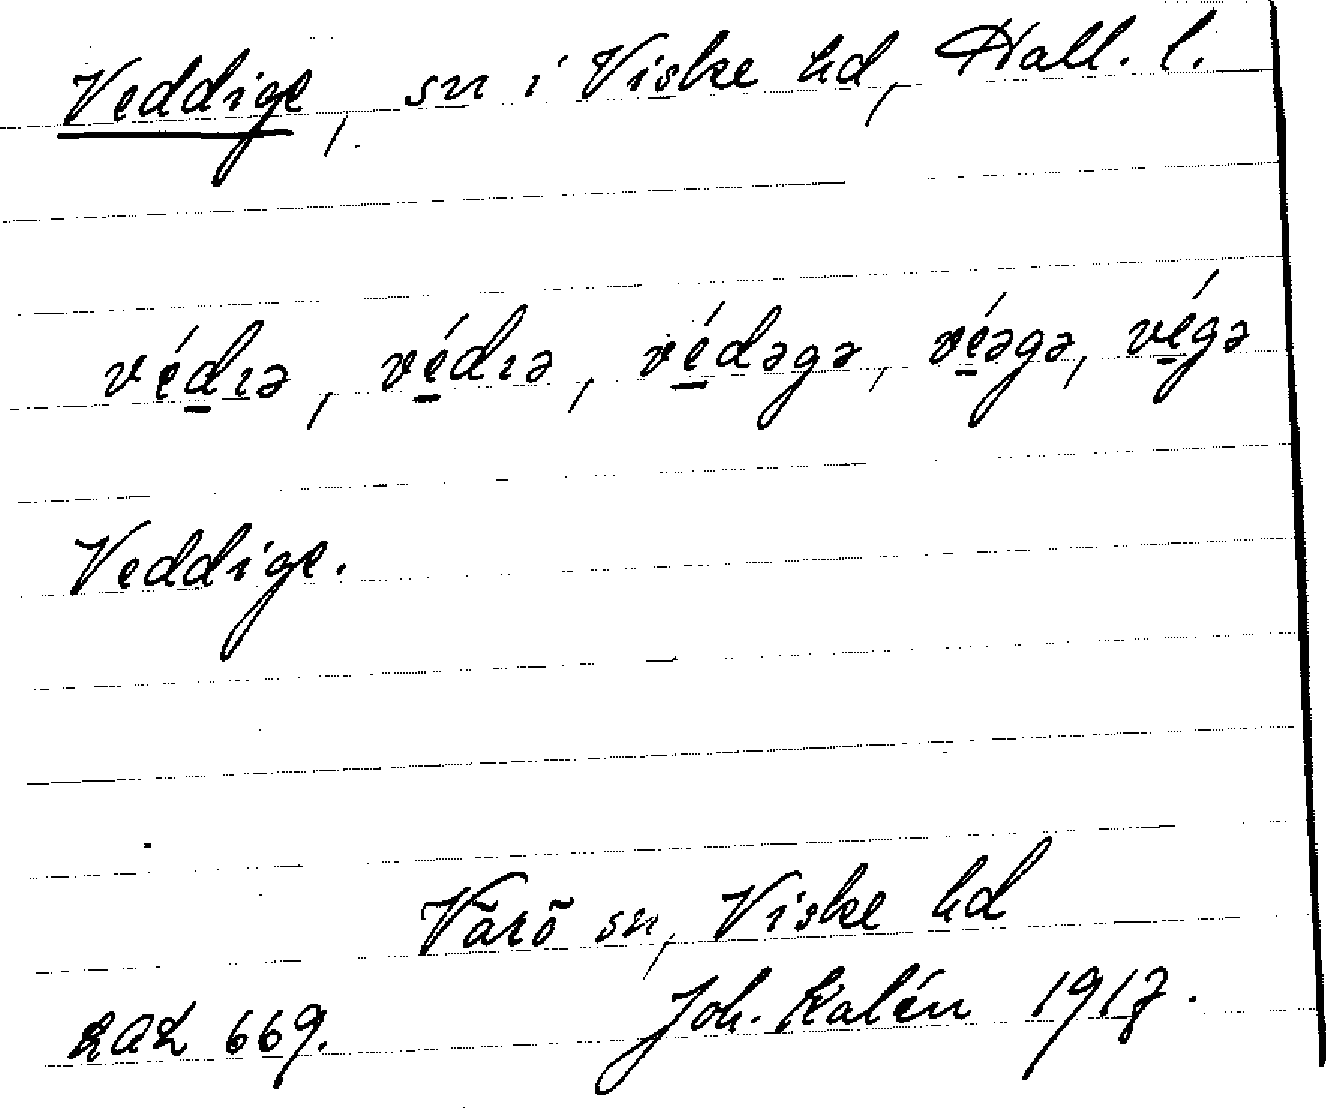 Veddige, sn i Viske hd, Hall. l.
védıə, védıə, védəgə, véəgə, végə
Veddige.
Värö sn, Viske hd
LAL 669. Joh. Kalén 1917.